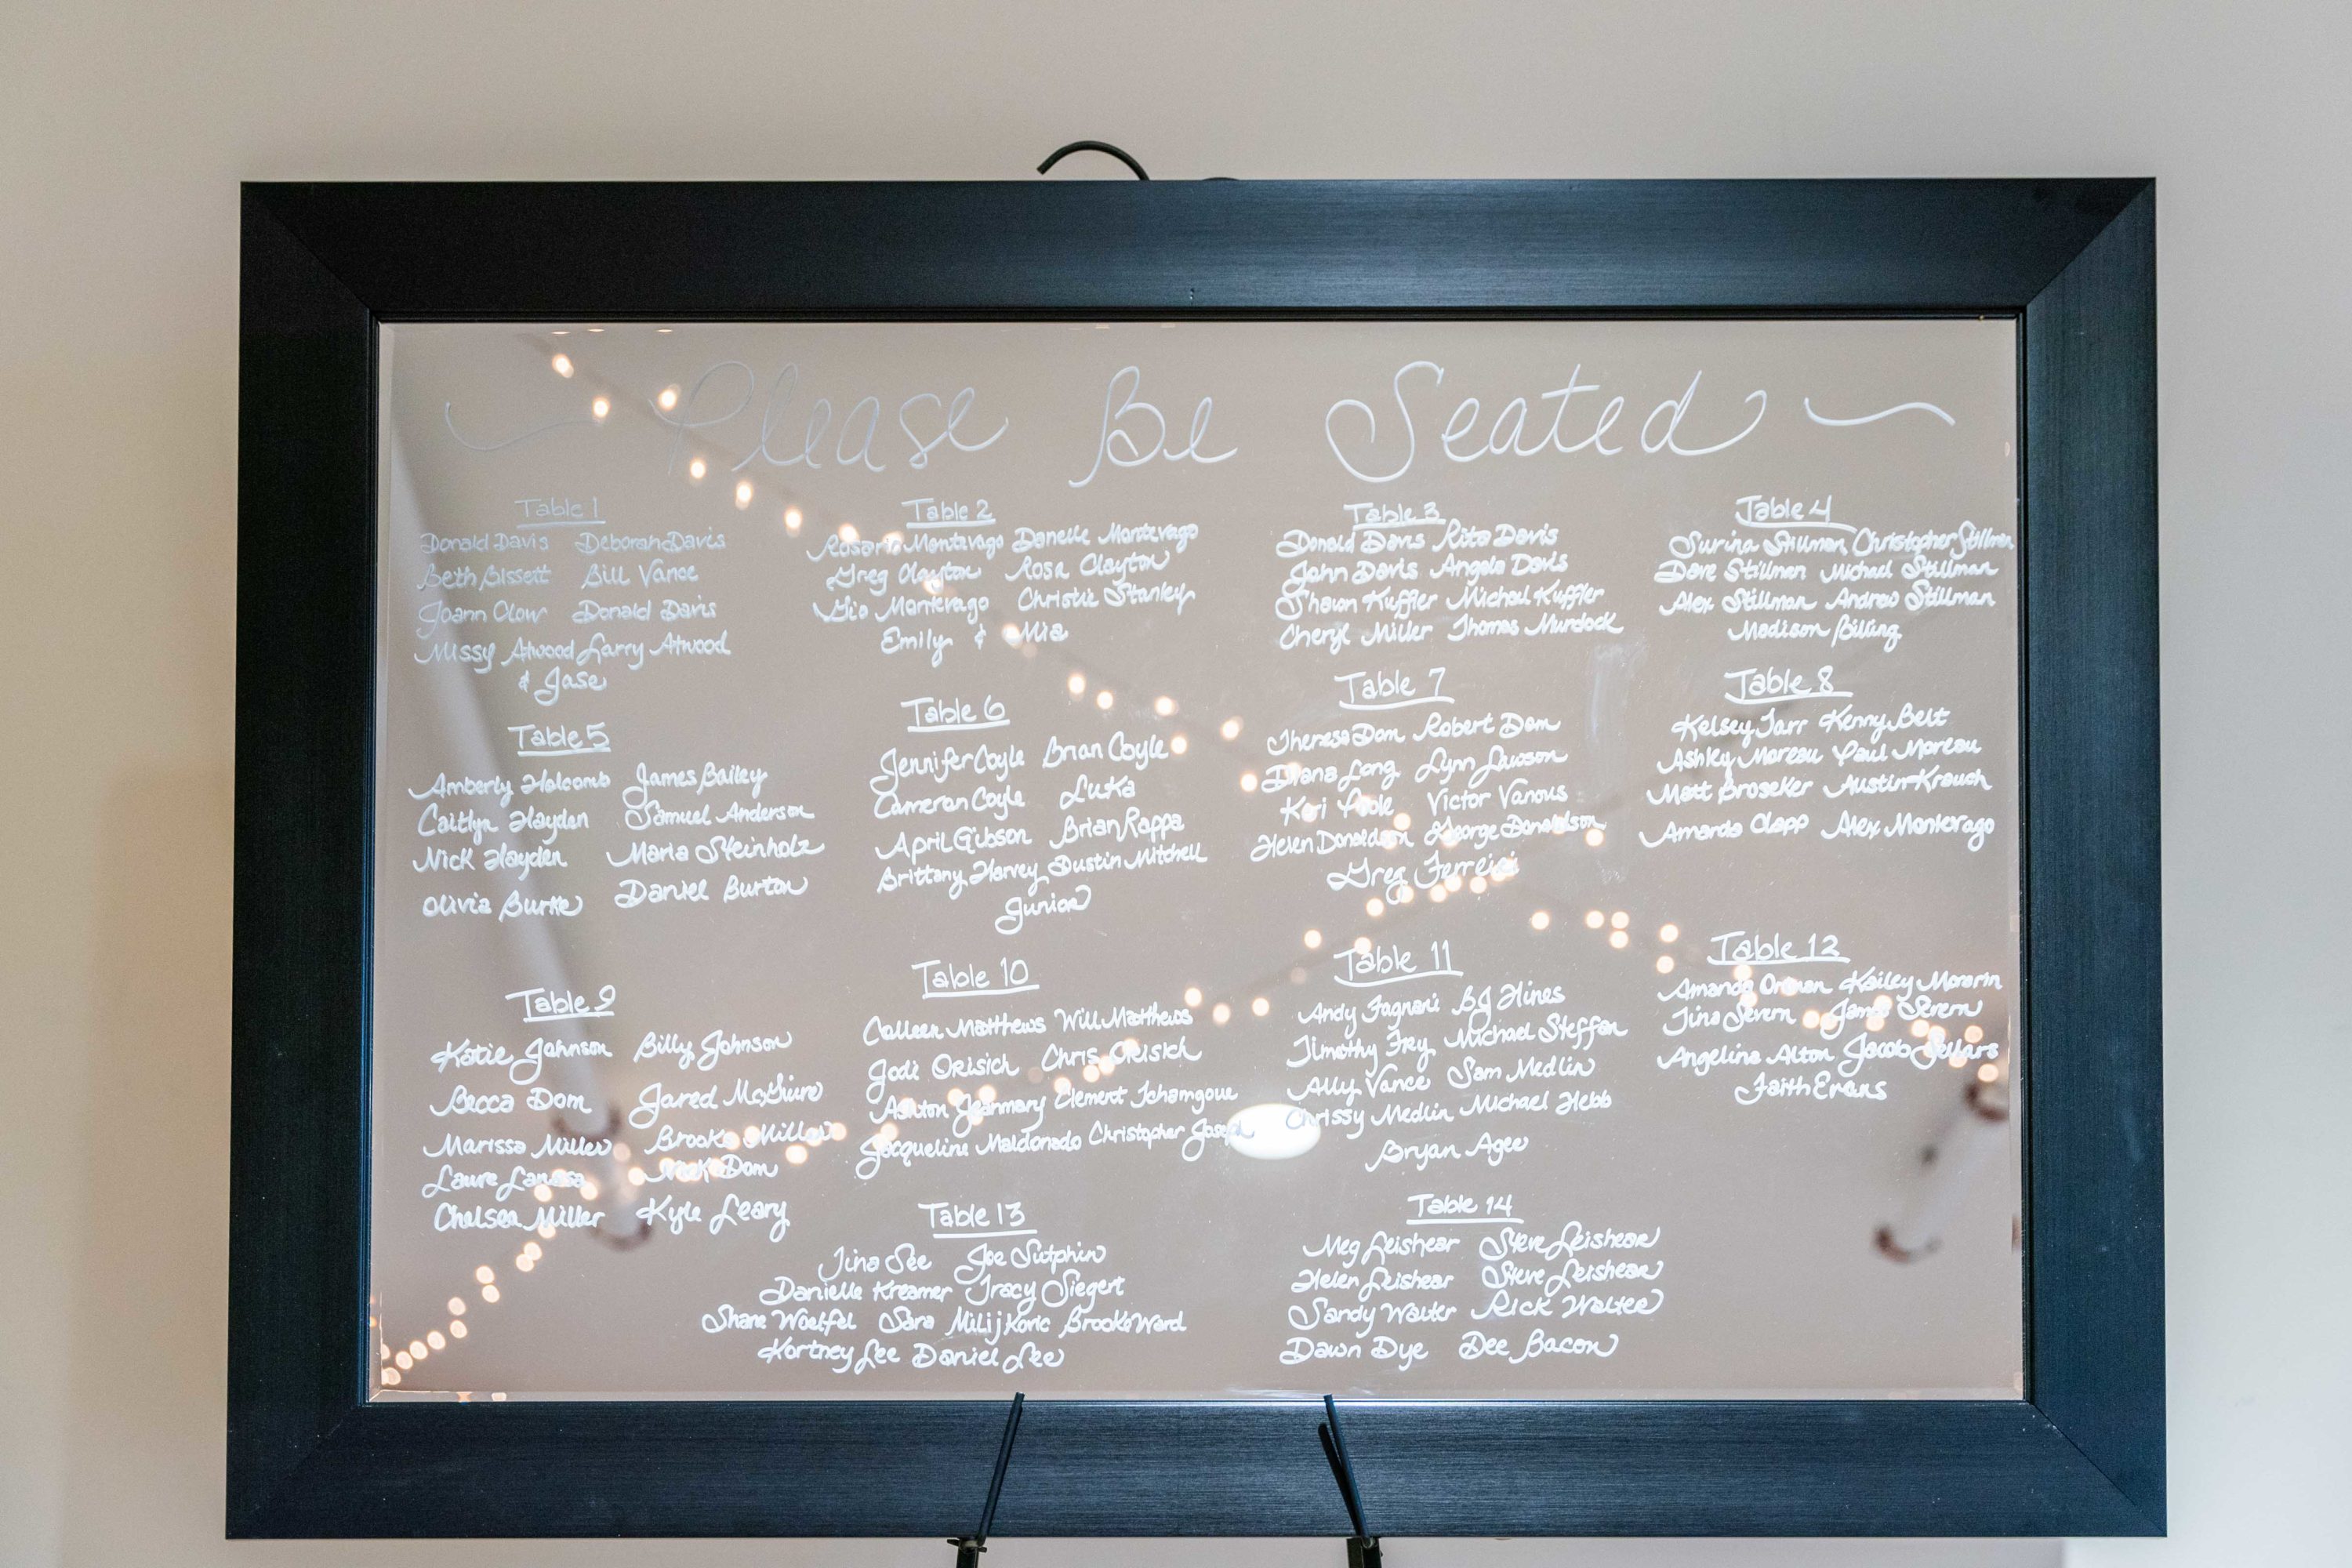 Please Be Seated
Table 1
Donald Davis Deborah Davis
Beth Bissett Bill Vance
Joann Clow Donald Davis
Missy Atwood Larry Atwood
& Jase
Table 2
Rosario Montevago Danelle Montevago
Greg Clayton Rosa Clayton
Gio Montevago Christie Stanley
Emily & Mia
Table 3
Donald Davis Rita Davis
John Davis Angela Davis
Shawn Kuffler Michael Kuffler
Cheryl Miller Thomas Murdock
Table 4
Surina Stillman Christopher Stillman
Dave Stillman Michael Stillman
Alex Stillman Andrew Stillman
Madison Billing
Table 5
Amberly Holcomb James Bailey
Caitlyn Hayden Samuel Anderson
Nick Hayden Maria Steinholz
Olivia Burke Daniel Burton
Table 6
Jennifer Coyle Brian Coyle
Cameron Coyle Luka
April Gibson Brian Rappa
Brittany Harvey Dustin Mitchell
Junior
Table 7
Theresa Dom Robert Dom
Diana Long Lynn Lawson
Keri Victor Vanous
Helen Donaldson George Donaldson
Greg
Table 8
Kelsey Tarr Kenny Belt
Ashley Moreau Paul Moreau
Matt Broseker Austin Krauch
Amanda Clapp Alex Montevago
Table 9
Katie Johnson Billy Johnson
Becca Dom Jared McGuire
Marissa Miller Brooke Miller
Laure Nick Dom
Chelsea Miller Kyle Leary
Table 10
Colleen Matthews Will Matthews
Jodi Orisich Chris Orisich
Ashton Jeanmary Clement Tchamgoue
Jacqueline Maldonado Christopher Joseph
Table 11
Andy Fagnani BJ Hines
Timothy Frey Michael Steffan
Ally Vance Sam Medlin
Chrissy Medlin Michael Hebb
Bryan Agee
Table 12
Amanda Orman Kailey Morarin
Tina Severn James Severn
Angelina Alton Jacob Sellars
Faith Evans
Table 13
Tina See Joe Sutphin
Danielle Kreamer Tracy Siegert
Shane Woelfel Sara Milijkovic Brooke Ward
Kortney Lee Daniel Lee
Table 14
Meg Leishear Steve Leishear
Helen Leishear Steve Leishear
Sandy Walter Rick Walter
Dawn Dye Dee Bacon